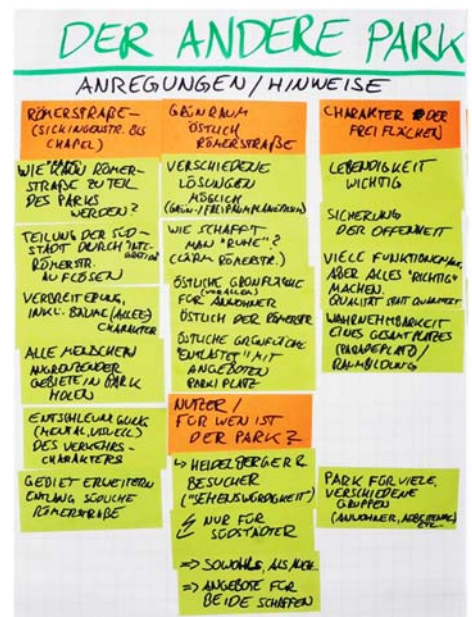 DER ANDERE PARK
ANREGUNGEN / HINWEISE
RÖMERSTRAßE –
(SICKINGENSTR. BIS
CHAPEL)
WIE KANN RÖMER-
STRAßE ZU TEIL
DES PARKS
WERDEN?
TEILUNG DER SÜD-
STADT DURCH
RÖMERSTR.
AUFLÖSEN
VERBREITERUNG,
INKL. BÄUME (ALLEE)
CHARAKTER
ALLE MENSCHEN
ANGRENZENDER
GEBIETE IN PARK
HOLEN
ENTSCHLEUNIGUNG
(MENTAL, VISUELL)
DES VERKEHRS-
CHARAKTERS
GEBIET ERWEITERN
ENTLANG SÜDLICHE
RÖMERSTRAßE
GRÜNRAUM
ÖSTLICH
RÖMERSTRAßE
VERSCHIEDENE
LÖSUNGEN
MÖGLICH
WIE SCHAFFT
MAN "RUHE"?
(LÄRM RÖMERSTR.)
ÖSTLICHE GRÜNFLÄCHE
(VOR ALLEM)
FÜR ANWOHNER
ÖSTLICH DER RÖMERSTR
ÖSTLICHE GRÜNFLÄCHE
"ENTLASTET" MIT
ANGEBOTEN
PARK/PLATZ
NUTZER /
FÜR WEN IST
DER PARK?
↳ HEIDELBERGER &
BESUCHER
("SEHENSWÜRDIGKEIT")
NUR FÜR
SÜDSTÄDTER
=> SOWOHL, ALS, AUCH
=> ANGEBOTE FÜR
BEIDE SCHAFFEN
CHARAKTER DER
FREIFLÄCHEN
LEBENDIGKEIT
WICHTIG
SICHERUNG
DER OFFENHEIT
VIELE FUNKTIONEN,
ABER ALLES "RICHTIG"
MACHEN.
QUALITÄT STATT QUANTITÄT
WAHRNEHMBARKEIT
EINES GESAMTPLATZES
(PARADEPLATZ) /
RAUMBILDUNG
PARK FÜR VIELE,
VERSCHIEDENE
GRUPPEN
(ANWOHNER,
ETC.